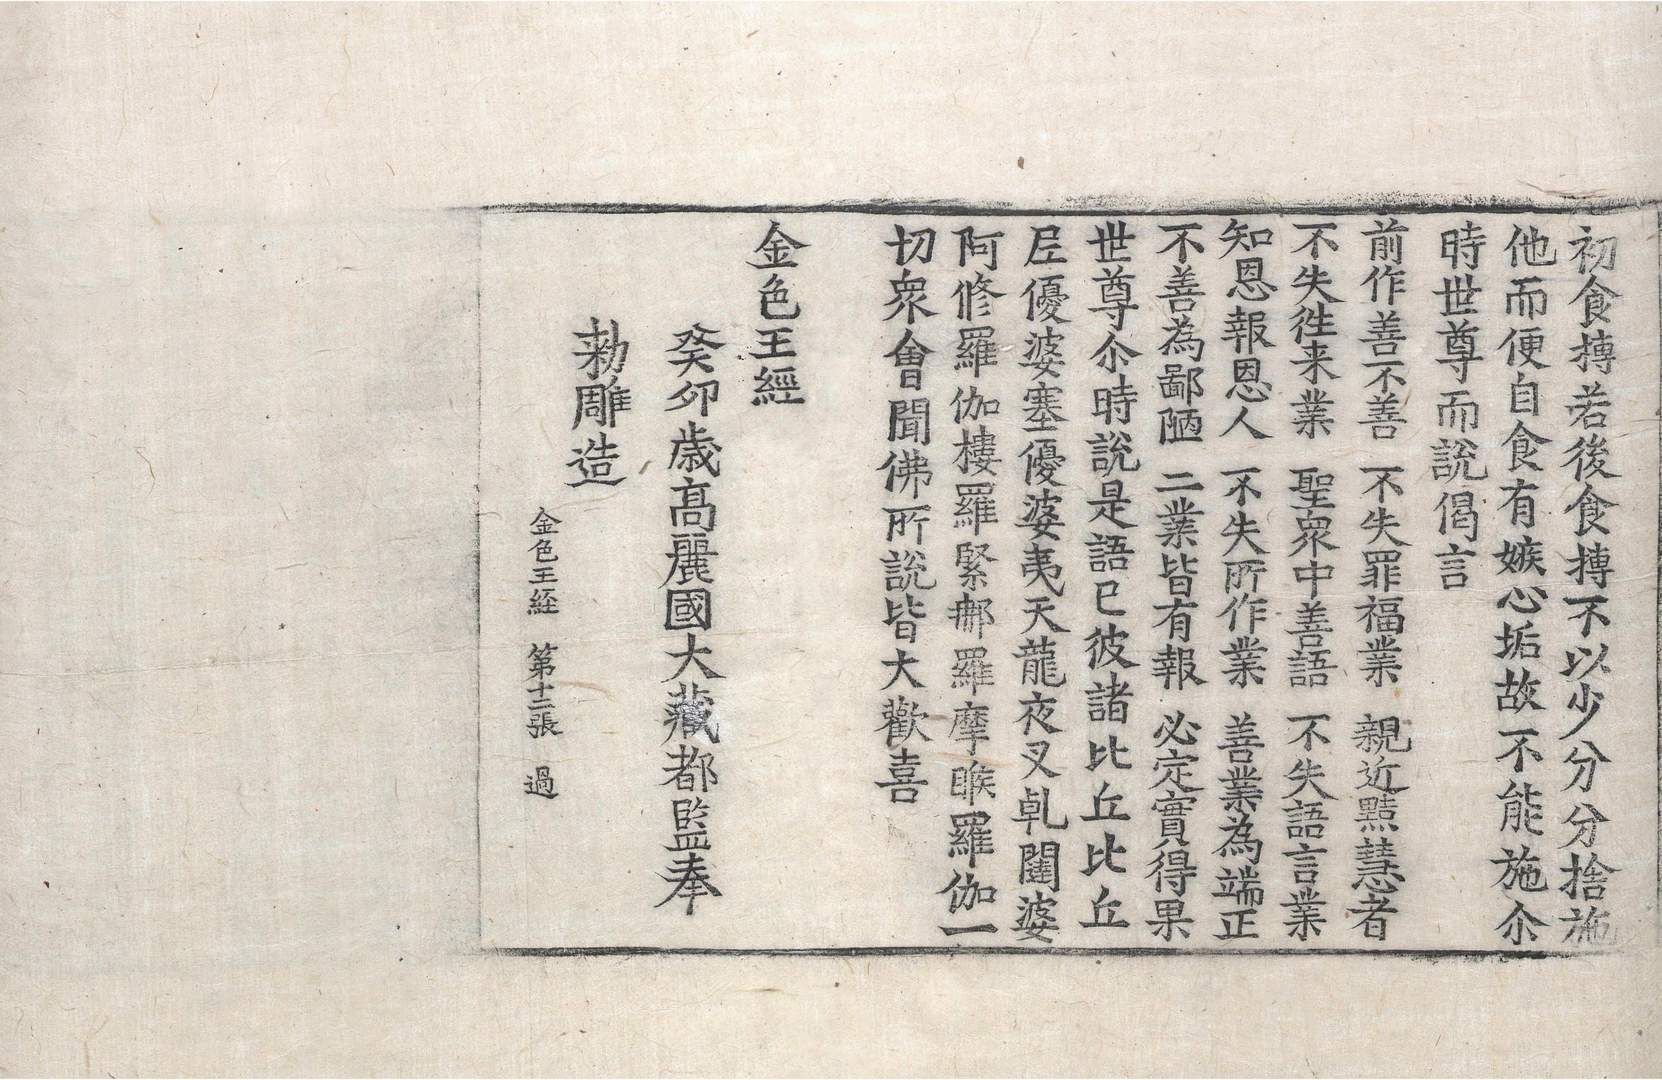 初食摶若後食摶不以少分分捨施
他而便自食有嫉心垢故不能施尒
時世尊而說偈言
前作善不善　不失罪福業　親近黠慧者
不失徃来業　聖衆中善語　不失語言業
知恩報恩人　不失所作業　善業為端正
不善為鄙陋　二業皆有報　必定實得果
世尊尒時說是語已彼諸比丘比丘
尼優婆塞優婆夷天龍夜叉乹闥婆
阿修羅伽樓羅緊那羅摩睺羅伽一
切衆會聞佛所說皆大歡喜
金色王經
癸卯歲高麗國大藏都監奉
勑雕造
金色王経　第十二張　過